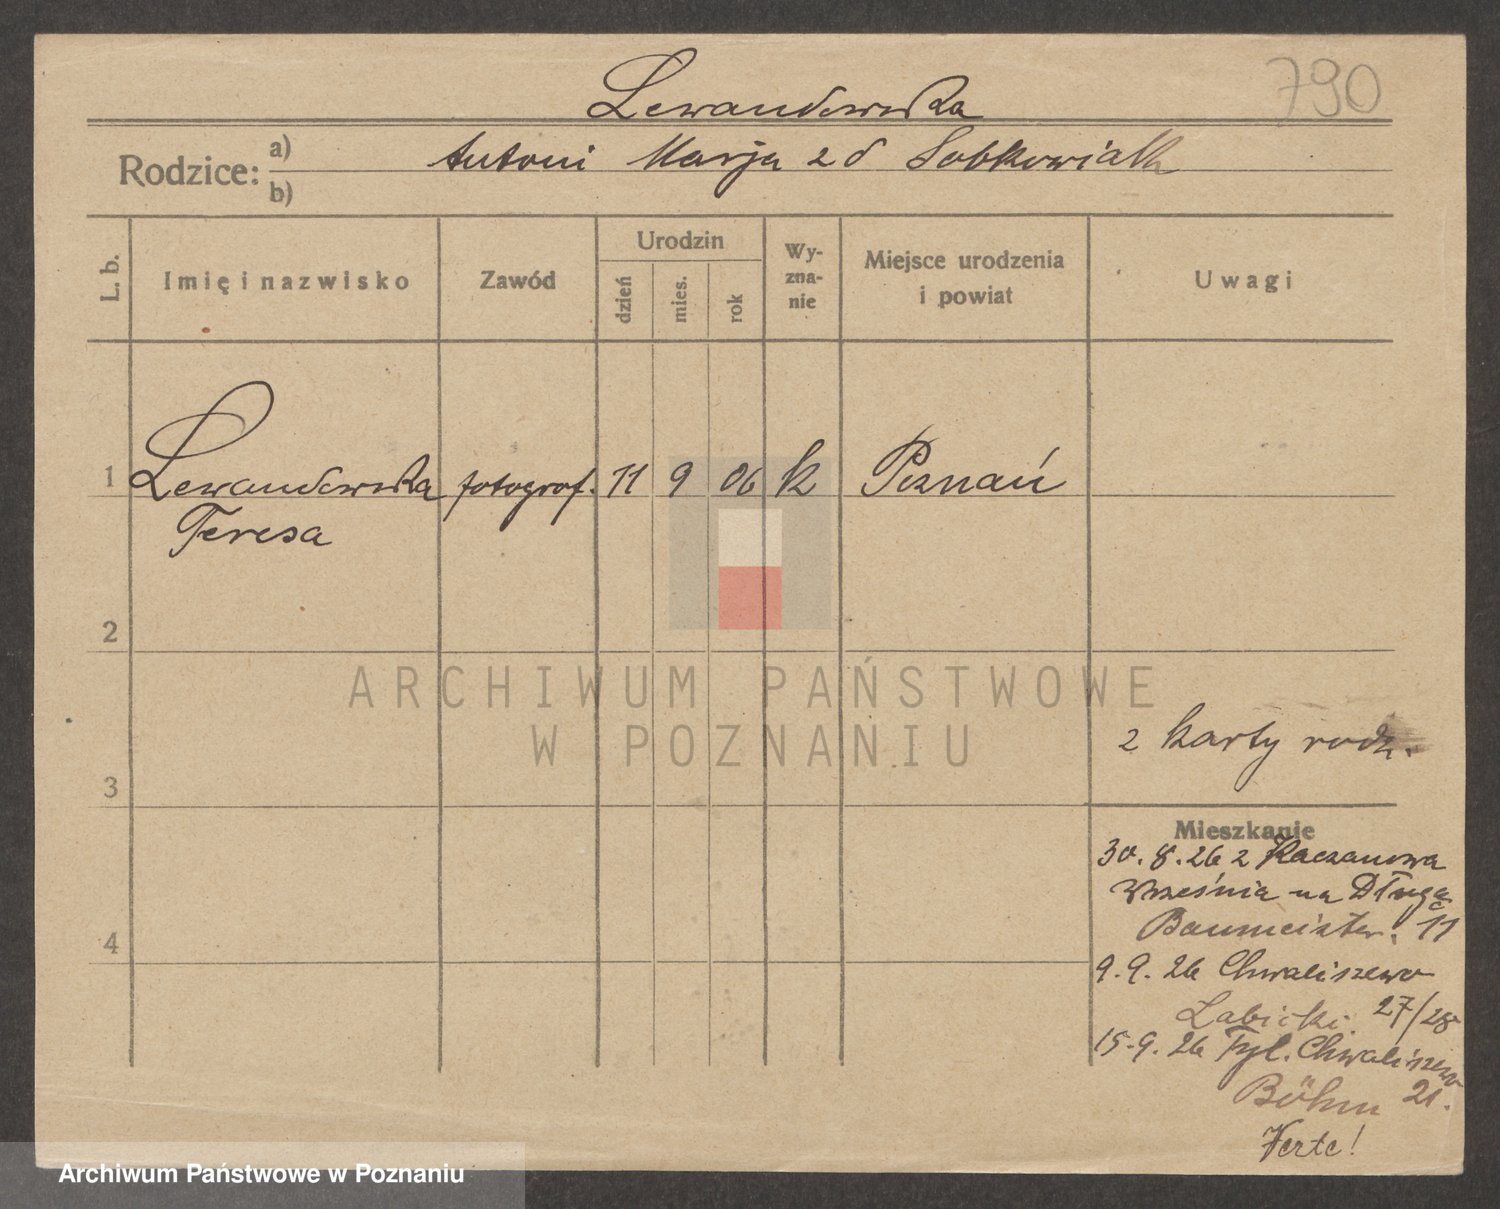 790
Lewandowska
Rodzice: a) b)
Antoni Marja z d Sobkowiak
L. b.
Imię i nazwisko
Zawód
Urodzin
dzień
mies.
rok
Wy-
zna-
nie
Miejsce urodzenia
i powiat
Uwagi
1 Lewandowska fotograf. 11 9 06 k Poznań
Teresa
2
ARCHIWUM PAŃSTWOWE
W POZNANIU
z karty rodz.
3
Mieszkanie
30. 8. 26 z Kaczanowa
Września na Długą
Baumeister. 11
4
9. 9. 26 Chwaliszewo
Labicki. 27/28
15. 9. 26 Tyl. Chwaliszewo
Böhm 21.
Verte!
Archiwum Państwowe w Poznaniu